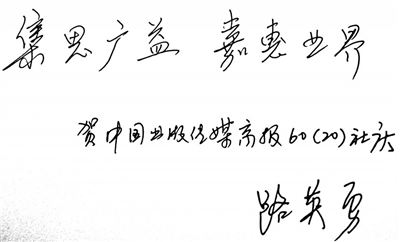 集思广益 嘉惠业界
贺中国出版传媒商报60(20)社庆
路英勇